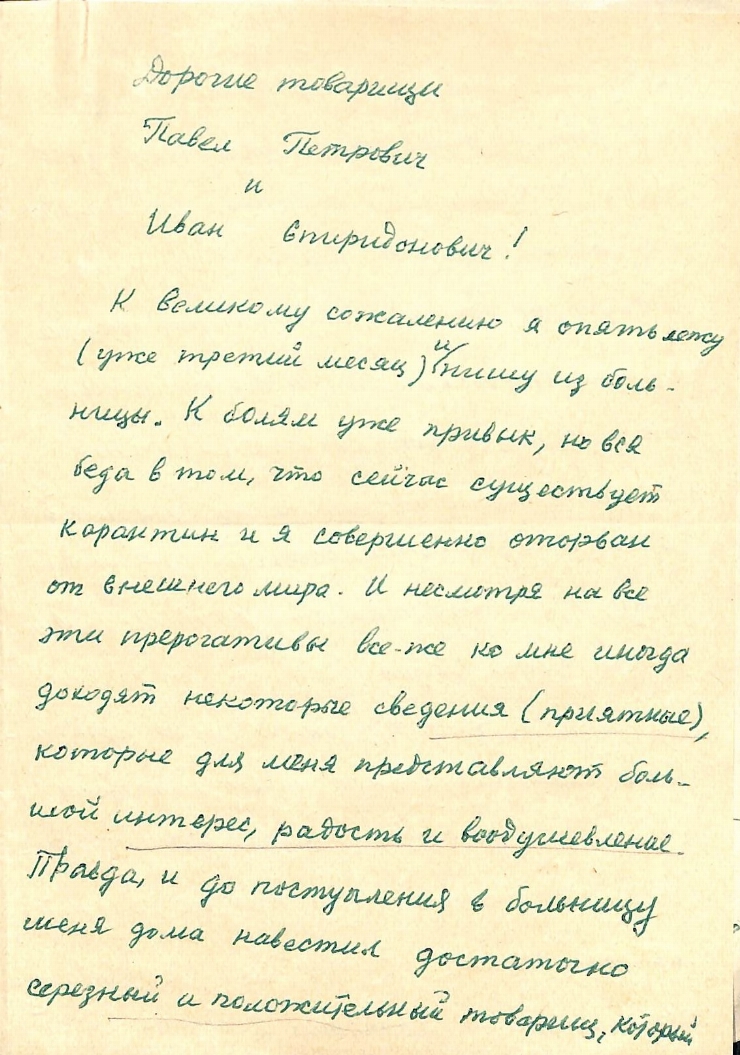 Дорогие товарищи
Павел Петрович
и
Иван Спиридонович!
К великому сожалению я опять лежу
(уже третий месяц) и пишу из боль-
ницы. К болям уже привык, но вся
беда в том, что сейчас существует
карантин и я совершенно оторван
от внешнего мира. И несмотря на все
эти прерогативы все-же ко мне иногда
доходят некоторые сведения (приятные),
которые для меня представляют боль-
шой интерес, радость и воодушевление.
Правда, и до поступления в больницу
меня дома навестил достаточно
серезный и положительный товарищ, который